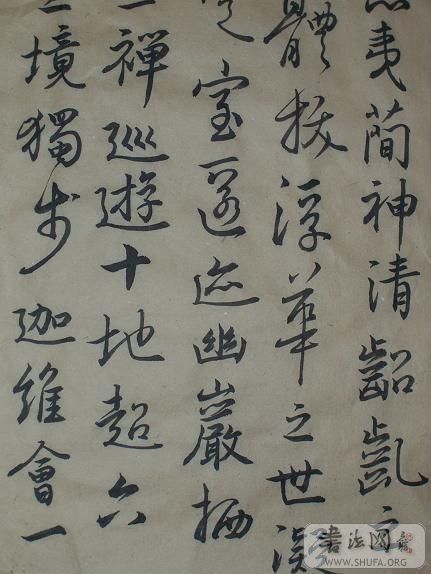 夷簡神清齠齔之
體拔浮華之世凝
室匿迹幽巖栖
禪巡遊十地超六
境獨步迦維會一
書法网
WWW.SHUFA.ORG